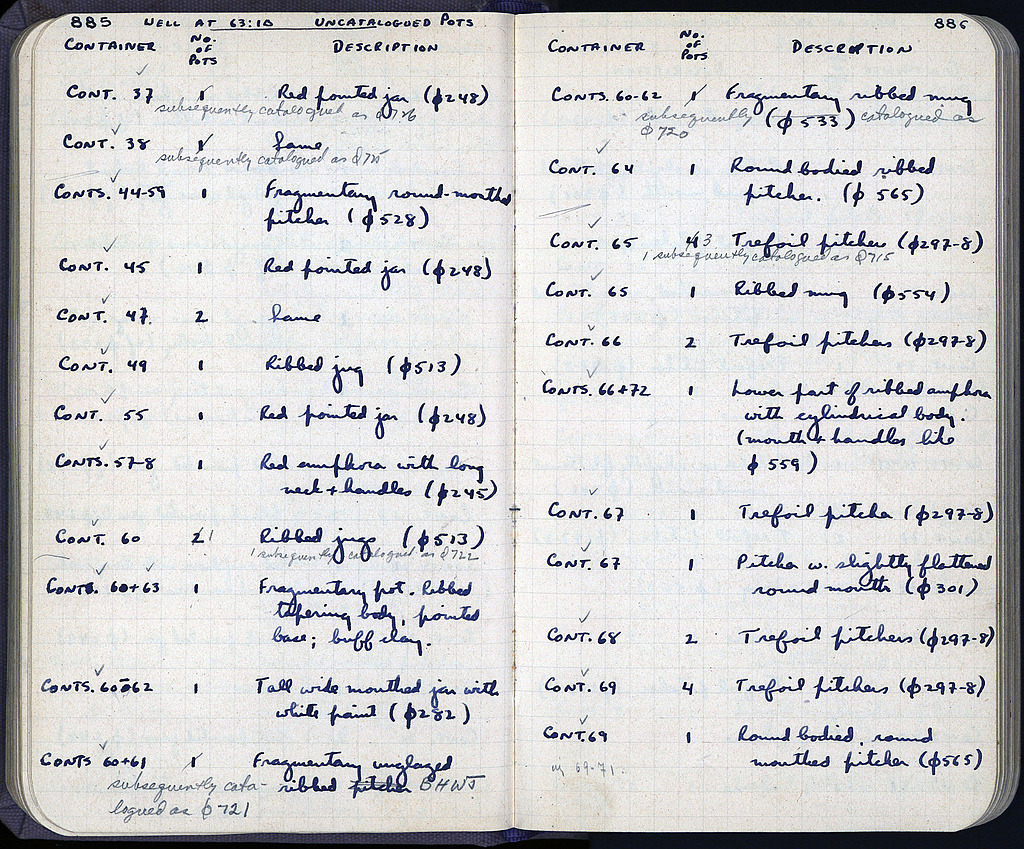 885 WELL AT 63:10 UNCATALOGUED POTS
CONTAINER No. of POTS DESCRIPTION
CONT. 37 1 Red pointed jar (φ248)
subsequently catalogued as φ726
CONT. 38 1 Same
subsequently catalogued as φ725
CONTS. 44-59 1 Fragmentary round-mouthed
pitcher (φ528)
CONT. 45 1 Red pointed jar (φ248)
CONT. 47. 2 Same
CONT. 49 1 Ribbed jug (φ513)
CONT. 55 1 Red pointed jar (φ248)
CONTS. 57-8 1 Red amphora with long
neck + handles (φ245)
CONT. 60 2 1 Ribbed jugs (φ513)
1 subsequently catalogued as φ722
CONTS. 60+63 1 Fragmentary pot. Ribbed
tapering body, pointed
base; buff clay.
CONTS. 60+62 1 Tall wide mouthed jar with
white paint (φ282)
CONTS 60+61 1 Fragmentary unglazed
subsequently cata- ribbed pitcher BHWJ
logued as φ721
886
CONTAINER No. of POTS DESCRIPTION
CONTS. 60-62 1 Fragmentary ribbed mug
subsequently (φ533) catalogued as
φ720
CONT. 64 1 Round bodied ribbed
pitcher. (φ 565)
CONT. 65 4 3 Trefoil pitchers (φ297-8)
1 subsequently catalogued as φ715
CONT. 65 1 Ribbed mug (φ554)
CONT. 66 2 Trefoil pitchers (φ297-8)
CONTS. 66+72 1 Lower part of ribbed amphora
with cylindrical body.
(mouth + handles like
φ559)
CONT. 67 1 Trefoil pitcher (φ297-8)
CONT. 67 1 Pitcher w. slightly flattened
round mouth (φ301)
CONT. 68 2 Trefoil pitchers (φ297-8)
CONT. 69 4 Trefoil pitchers (φ297-8)
CONT. 69 1 Round bodied, round
mouthed pitcher (φ565)
69-71.